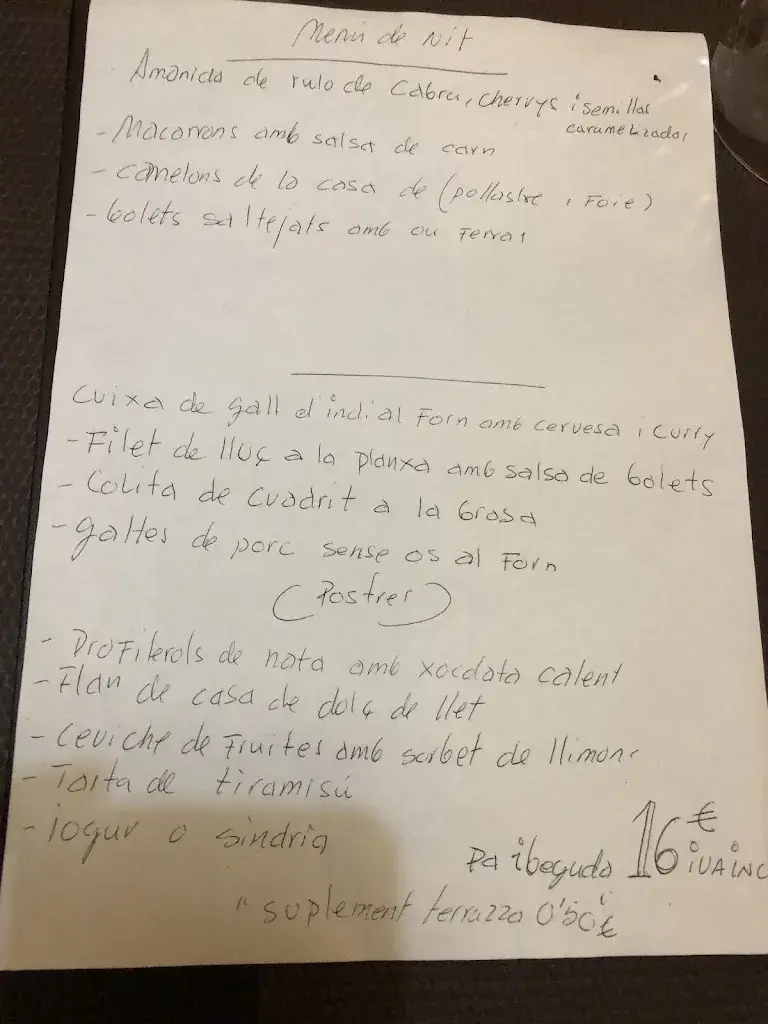 Menú de Nit
Amanida de rulo de cabra, cherrys i semillas
caramelizadas
- Macarrons amb salsa de carn
- canelons de la casa de (pollastre i Foie)
- bolets saltejats amb ou Ferrat
Cuixa de gall d indi al Forn amb cervesa i curry
- Filet de lluç a la planxa amb salsa de bolets
- Colita de cuadrit a la brasa
- galtes de porc sense os al Forn
(Postres)
- Profiterols de nata amb xocolata calent
- Flan de casa de dolç de llet
- Ceviche de Fruites amb sorbet de llimona
- Tarta de tiramisú
- iogur o sindria
Pa i beguda 16 € iVA iNC
" suplement terrazza 0'50 €